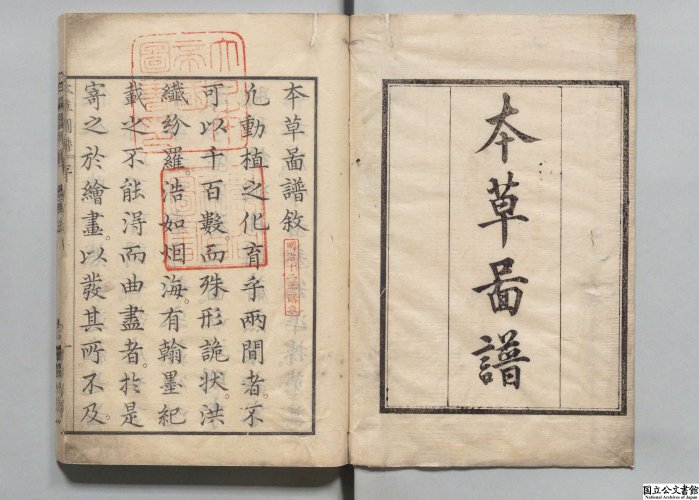 本草啚譜
本草啚譜敘
凡動植之化育乎兩間者。不
可以千百數而殊形詭狀。洪
纖紛羅。浩如烟海。有翰墨紀
載之不能淂而曲盡者。於是
寄之於繪畫。以發其所不及。
國立公文書館
National Archives of Japan